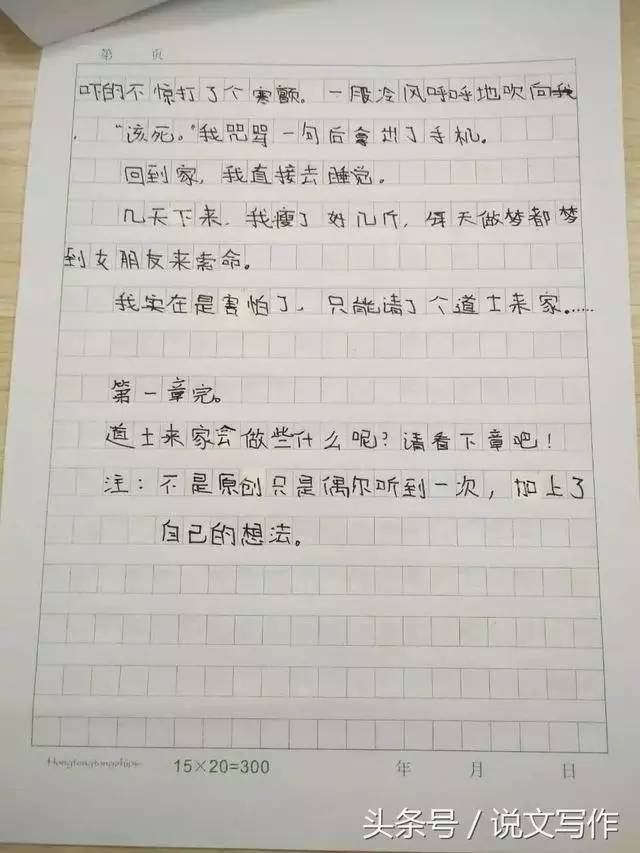 第 页
吓的不惊打了个寒颤。一股冷风呼呼地吹向我
。“该死。”我咒骂一句后拿出了手机。
回到家,我直接去睡觉。
几天下来,我瘦了好几斤,每天做梦都梦
到女朋友来索命。
我实在是害怕了,只能请了个道士来家……
第一章完。
道士来家会做些什么呢?请看下章吧!
注:不是原创只是偶尔听到一次,加上了
自己的想法。
15×20=300 年 月 日
头条号 / 说文写作